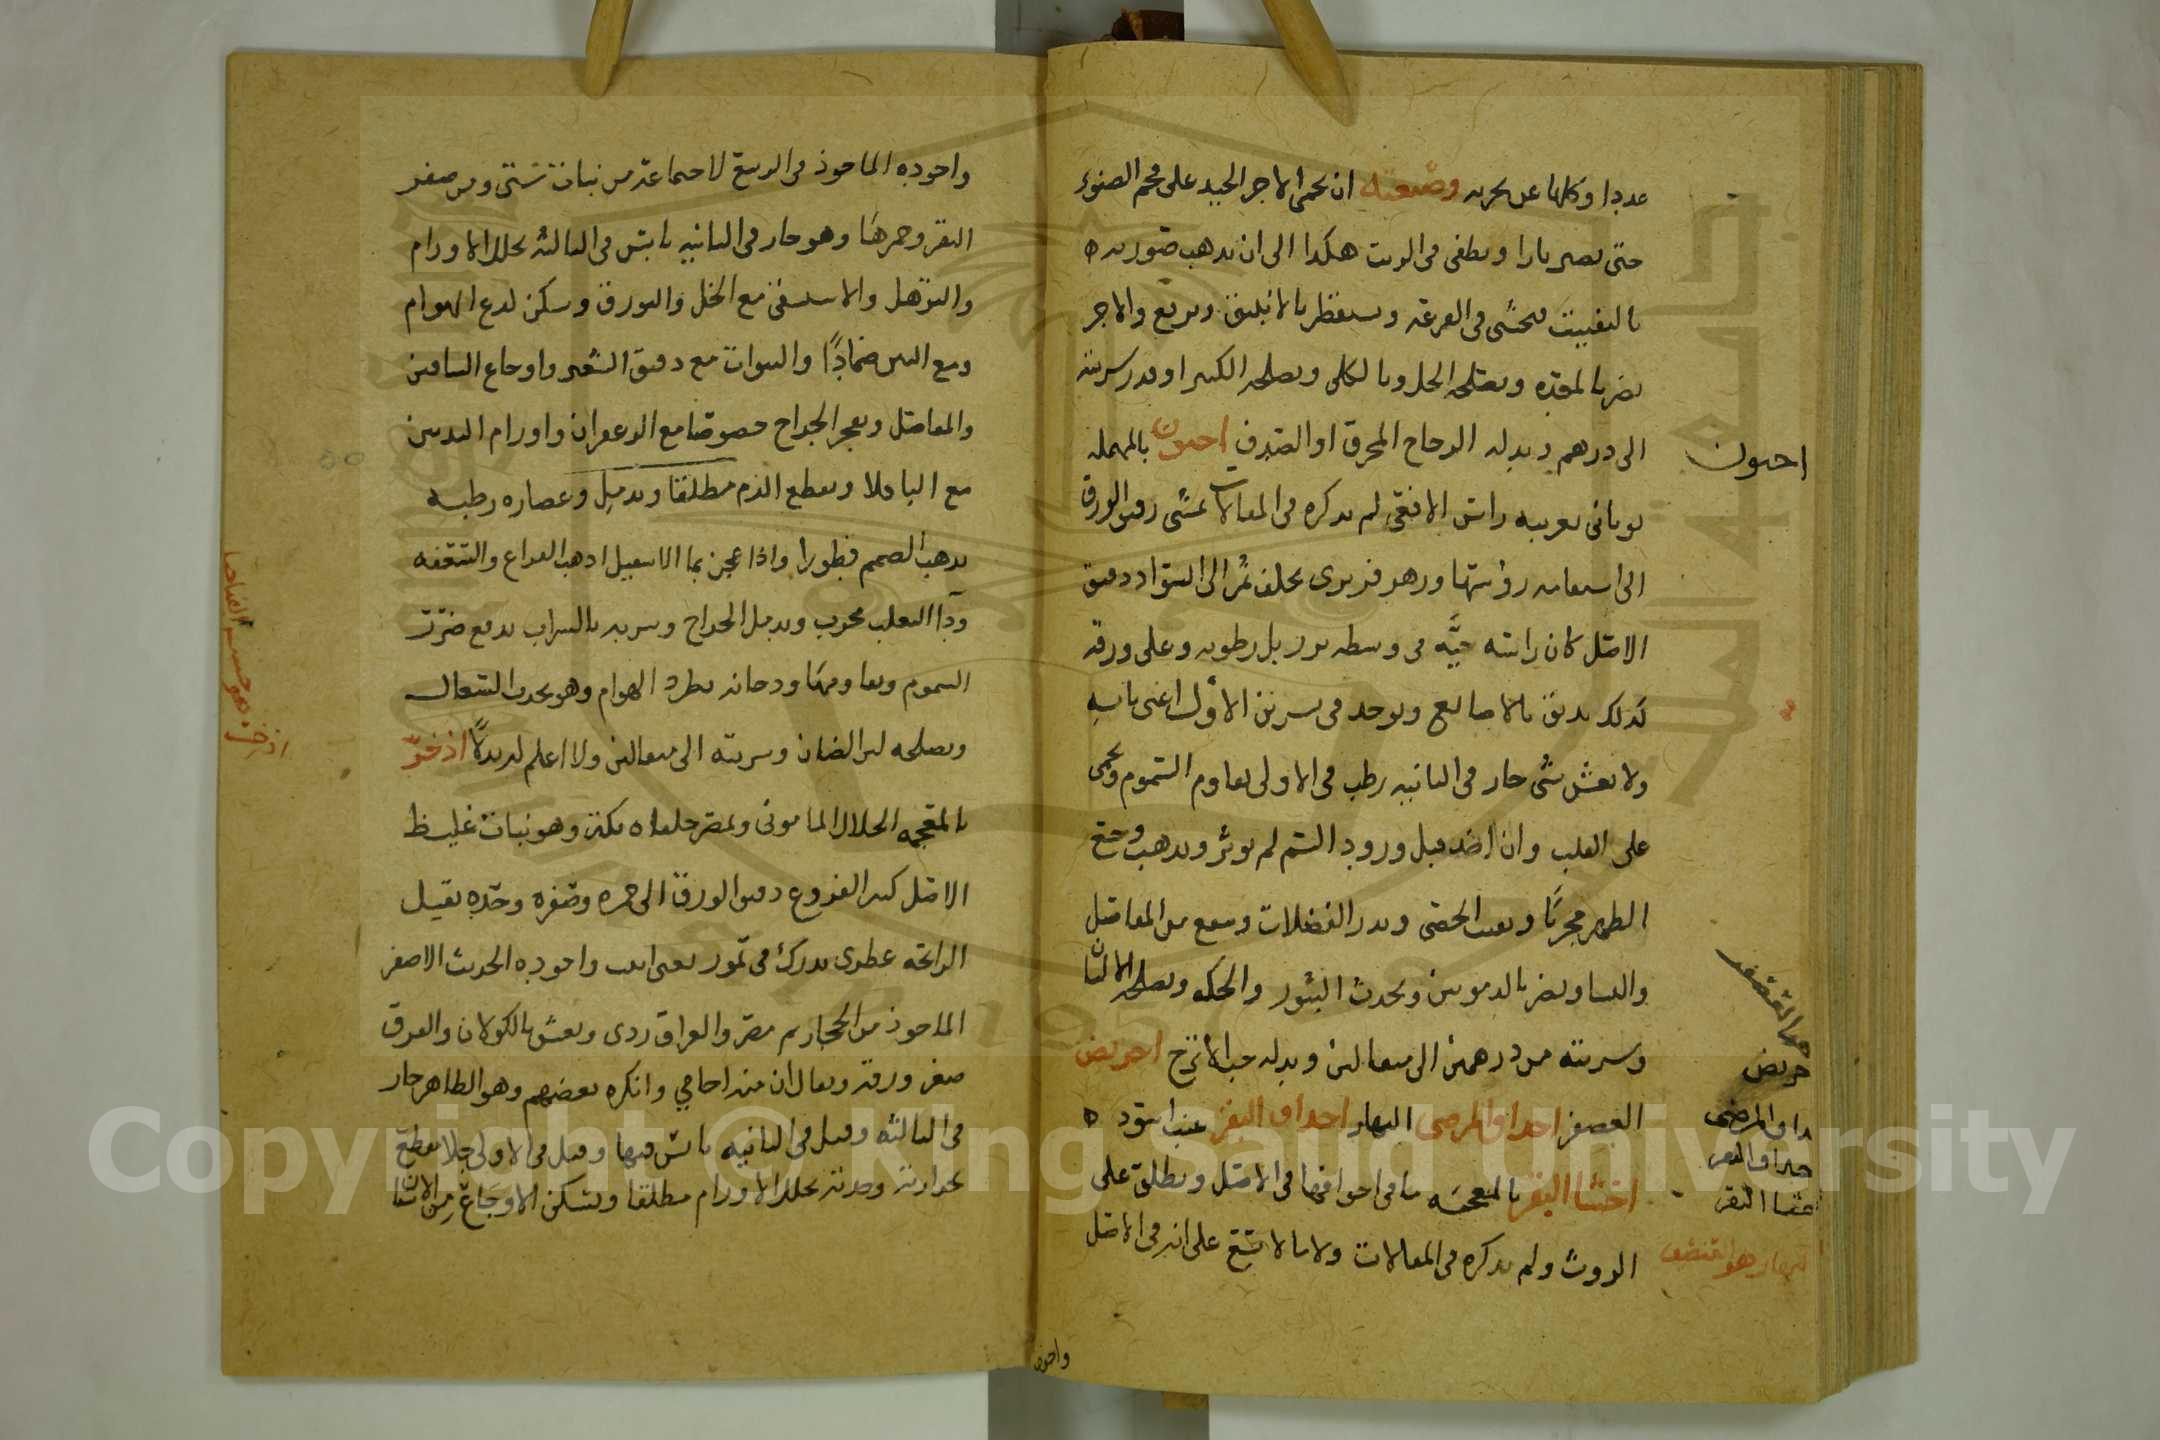 عددا وكلها عن تجربه وصنعته ان يحمى الاجر الجيد على فحم الصنوبر
حتى يصير نارا ويطفى فى الزيت هكذا الى ان يذهب صورته ه
بالتفتيت فيحشى فى القرعة ويستقطر بالانبيق ويرفع والاجر
يضر بالمعده ويصلحه الخل وبالكلى ويصلحه الكثيرا وقدر شربته
الى درهم وبدله الزجاج المحرق او الصدف احيون بالمهمله
يونانى تعريبه راس الافعى لم يذكره فى المقالات تمنشى دقيق الورق
الى استقامه رؤسها وزهر فرفيرى يخلف ثمرا الى السواد دقيق
الاصل كان راسه حيّه فى وسطه بزر بل رطوبه وعلى ورقه
كذلك يدبق بالاصابع ويوجد فى تشرين الاوّل اعنى بابه
ولا يغش بشى حار فى الثانيه رطب فى الاولى يقاوم السموم ويحمى
على القلب وان اخذ قبل ورود السم لم يوثر ويذهب وجع
الظهر مجربًا ويفتت الحصى ويدر الفضلات وينفع من المفاصل
والنسا ويضر بالدمويين ويحدث البثور والحكه ويصلحه الالبان
وشربته من درهمين الى مثقالين وبدله حب الاترج احريض
العصفر احداق المرضى البهار احداق البقر عنب اسود ه
اخثا البقر بالمعجمه ما فى اجوافها فى الاصل ويطلق على
الروث ولم يذكره فى المقالات ولا ما لا يسع على انه فى الاصل
احيون
العصفر
حريض
داق المرضى
حداق البقر
خثا البقر
واجوده
واجوده الماخوذ فى الربيع لاجتماعه من نبات شتى ومن صفر
البقر وحمرها وهو حار فى الثانيه يابس فى الثالثه يحلل الاورام
والترهل والاستسقى مع الخل والبورق ويسكن لدع الهوام
ومع التين ضمادًا والنبوات مع دقيق الشعير واوجاع الساقين
والمفاصل ويفجر الجراح خصوصا مع الزعفران واورام الثديين
مع الباقلا ويقطع الدم مطلقا ويدمل وعصاره رطبه
يذهب الصمم قطورا واذا عجن بما الاسقيل اذهب القراع والسعفه
ودآ الثعلب مجرب ويدمل الجراح وشربه بالشراب يدفع ضرر
السموم ويقاومها ودخانه يطرد الهوام وهو يحدث السعال
ويصلحه لبن الضان وشربته الى مثقالين ولا اعلم له بدلًا اذخر
بالمعجمه الخلال المامونى وبمصر حلفاه مكه وهو نبات غليظ
الاصل كثير الفروع دقيق الورق الى حمره وصفره وحده ثقيل
الرائحه عطرى يدرك فى تموز يعنى ابيب واجوده الحديث الاصفر
الماخوذ من الحجاز ثم مصر والعراق ردى ويغش بالكولان والفرق
صغر ورقه ويقال ان منه اجامي وانكره بعضهم وهو الظاهر حار
فى الثالثه وقيل فى الثانيه يابس فيها وقيل فى الاولى جلا مقطع
بحرارته وحدته يحلل الاورام مطلقا ويسكن الاوجاع من الاسنان